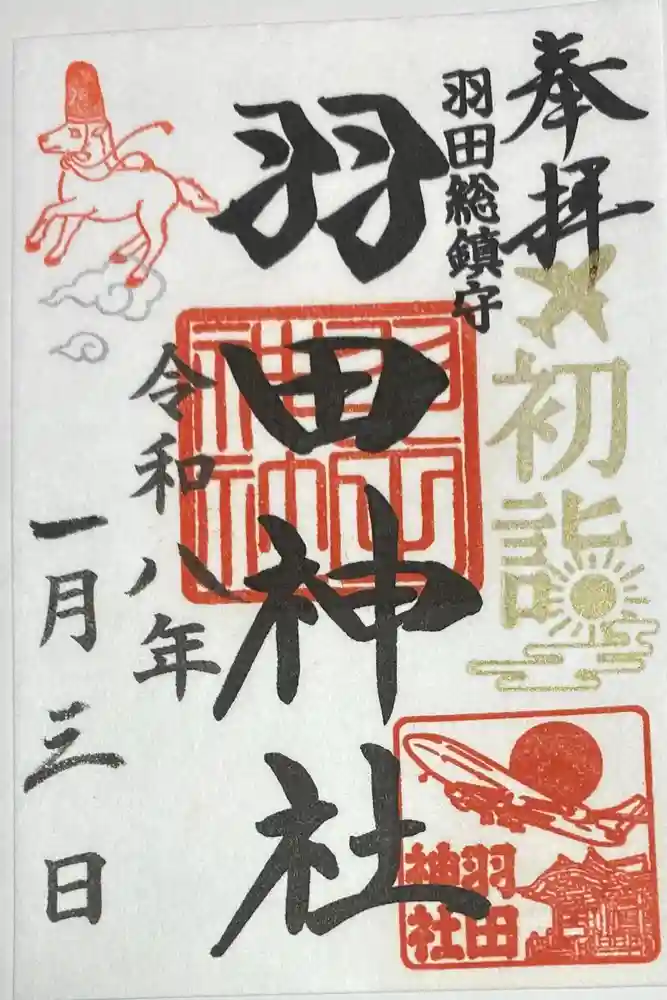 奉拝
羽田総鎮守
初詣
羽田神社
羽田神社
羽田
神社
令和八年
一月三日